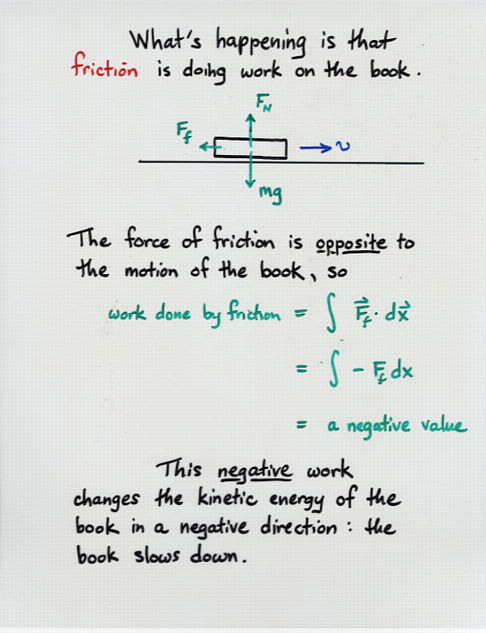 What's happening is that
friction is doing work on the book.
F_N
F_f
v
mg
The force of friction is opposite to
the motion of the book, so
work done by friction = ∫ F⃗_f · dx⃗
= ∫ - F_f dx
= a negative value
This negative work
changes the kinetic energy of the
book in a negative direction : the
book slows down.